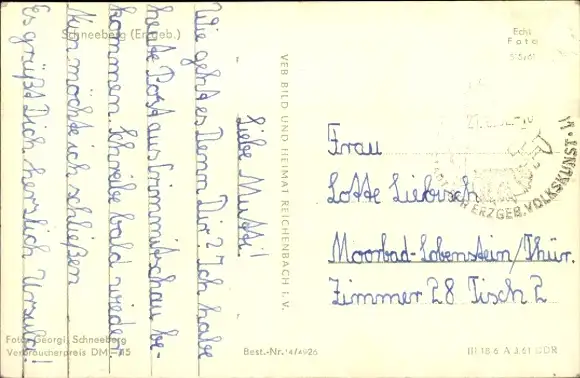 Schneeberg (Erzgeb.)
Liebe Mutti!
Wie geht es Denn Dir? Ich habe
heute Post aus Crimmitschau be-
kommen. Schreibe bald wieder.
Nun möchte ich schließen
Es grüßt Dich herzlich Ursula!
Foto: Georgi, Schneeberg
Verbraucherpreis DM
VEB BILD UND HEIMAT REICHENBACH I. V.
Best.-Nr. 4/4926
Echt
Foto
ERZGEB. VOLKSKUNST
Frau
Lotte Liebisch
Moorbad-Lobenstein/Thür.
Zimmer 28 Tisch 2
III 18 6 A 3.61 DDR